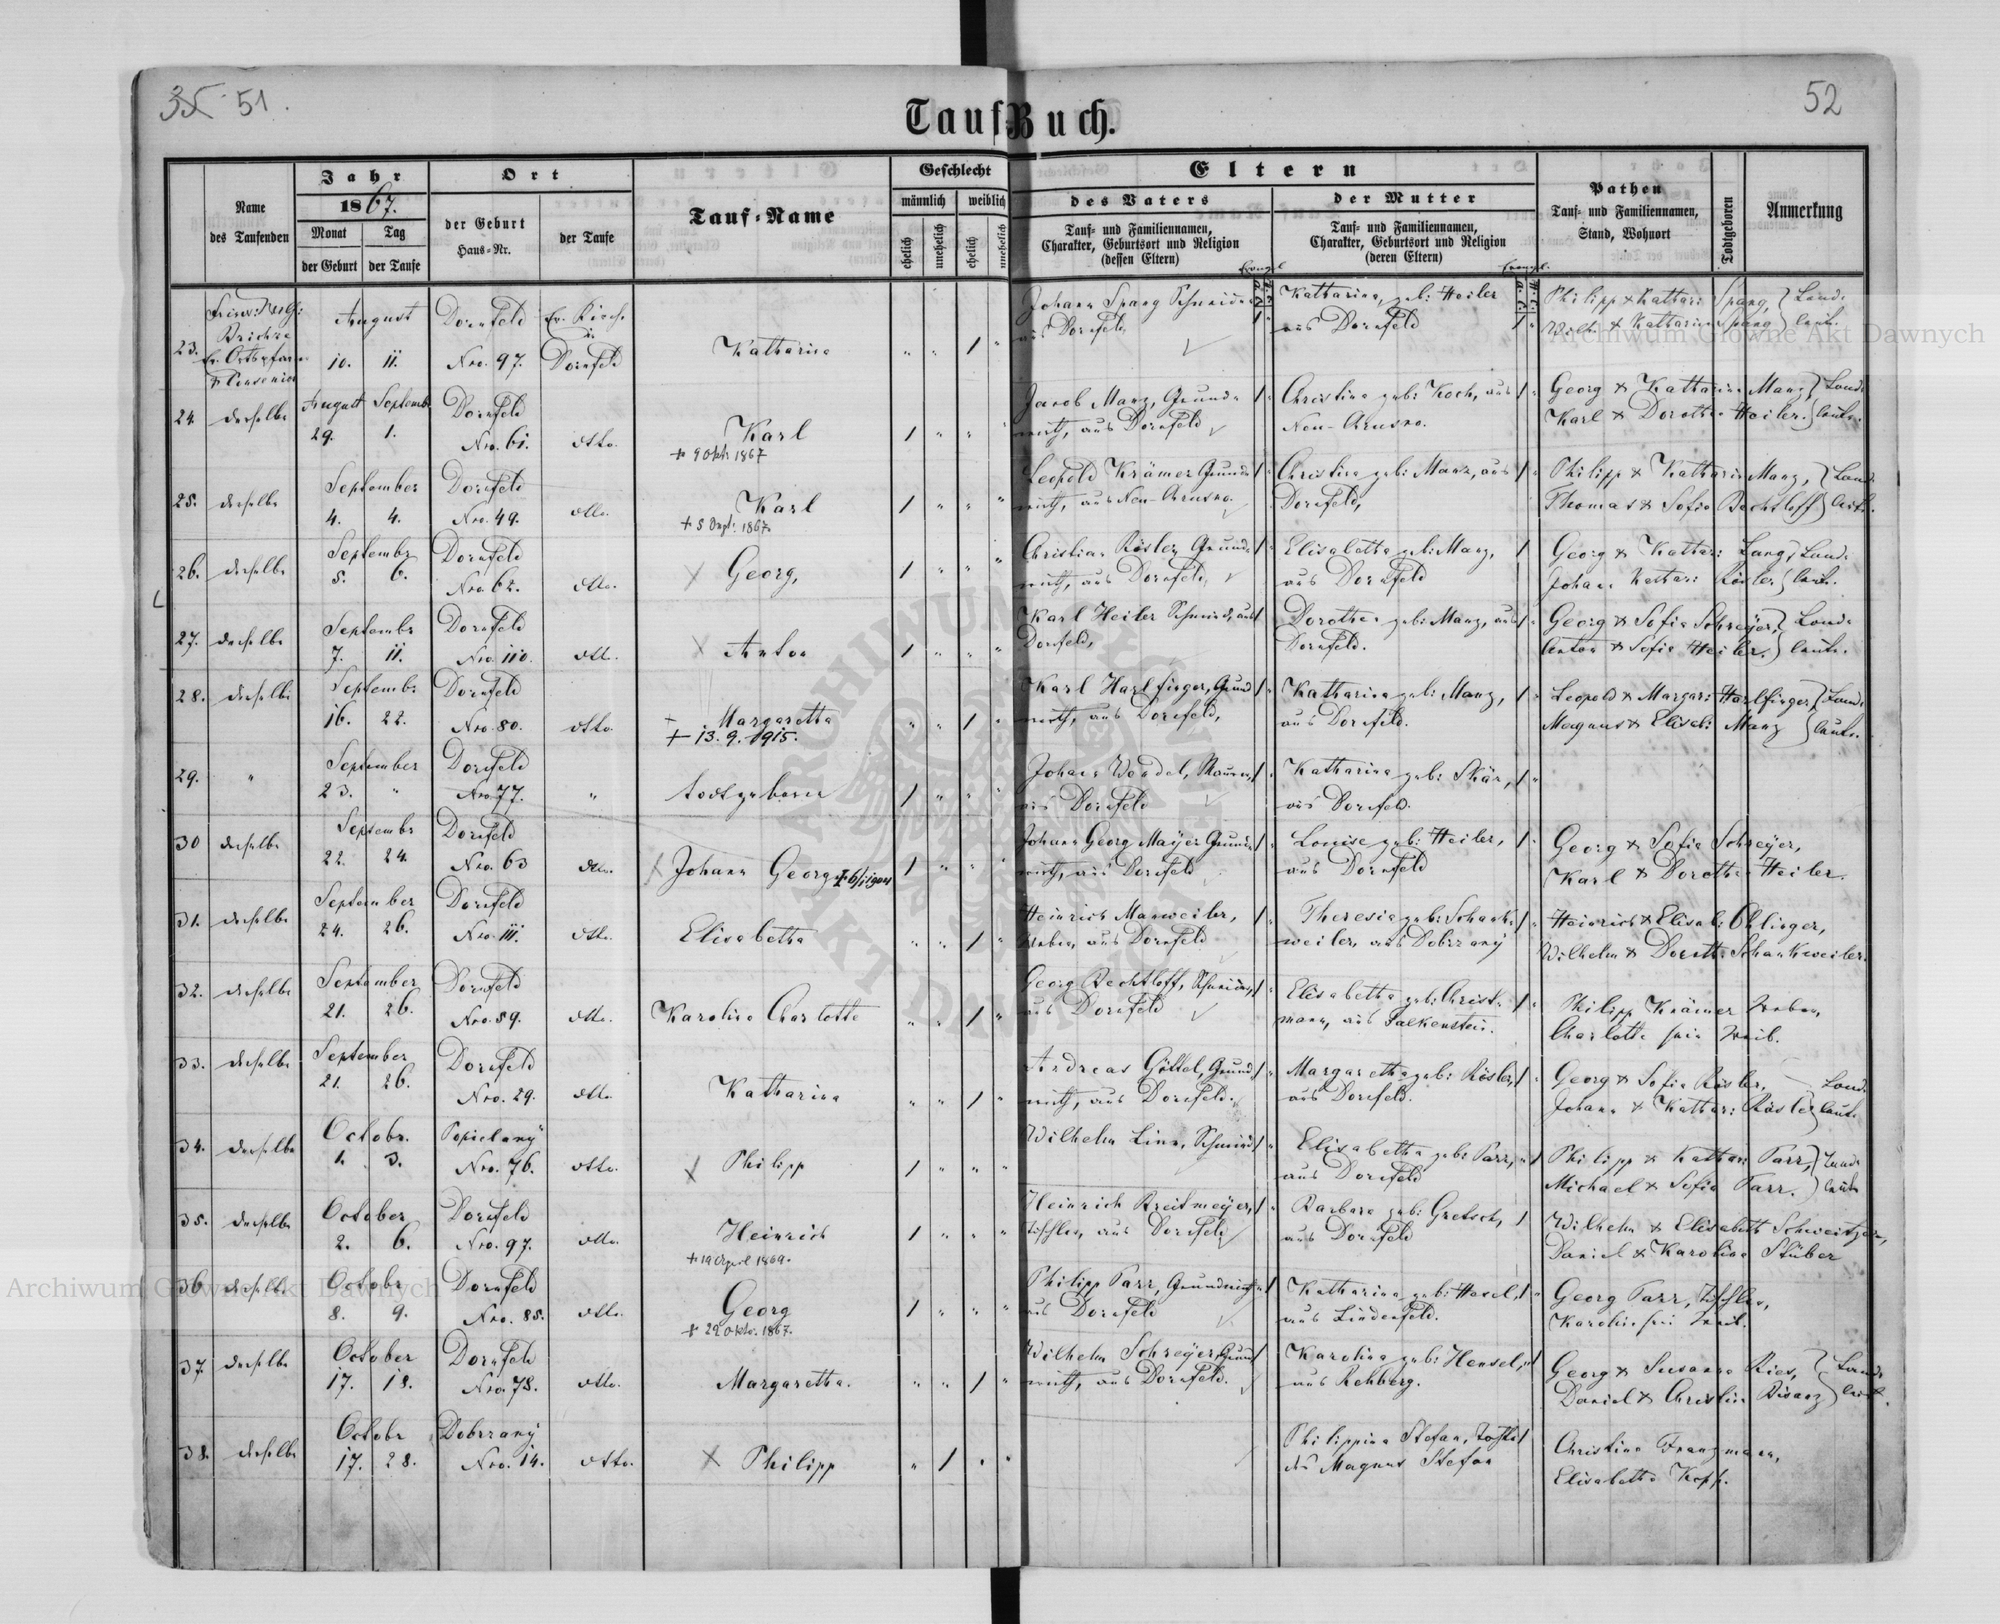 51.
52
Tauf-Buch.
Name
des Taufenden
Jahr
1867.
Monat
Tag
der Geburt
der Taufe
Ort
der Geburt
Haus-Nr.
der Taufe
Tauf-Name
Geschlecht
männlich
weiblich
ehelich
unehelich
ehelich
unehelich
Eltern
des Vaters
Tauf- und Familiennamen,
Charakter, Geburtsort und Religion
(dessen Eltern)
der Mutter
Tauf- und Familiennamen,
Charakter, Geburtsort und Religion
(deren Eltern)
Pathen
Tauf- und Familiennamen,
Stand, Wohnort
Todtgeboren
Anmerkung
23.
August
10. 11.
Dornfeld
Nro. 97.
Ev. Kirche
in
Dornfeld
Katharina
Johann Spang Schneider
aus Dornfeld
Katharina, geb: Heiler
aus Dornfeld
Philipp & Kathari: Spang,
Wilh: & Katharina Spang
Land-
leute.
24. derselbe
August Septemb.
29. 1.
Dornfeld
Nro. 61.
dtto.
Karl
+ 9 Okt. 1867
Jacob Manz, Grund-
wirth, aus Dornfeld
Christina geb: Koch, aus
Neu-Chrusno.
Georg & Katharina Manz,
Karl & Dorothea Heiler.
Land-
leute.
25. derselbe
September
4. 4.
Dornfeld
Nro. 49.
dtto.
Karl
+ 5 Sept. 1867.
Leopold Krämer Grund-
wirth, aus Neu-Chrusno.
Christina geb: Manz, aus
Dornfeld,
Philipp & Katharin Manz,
Thomas & Sofia Bechtloff
Land-
leute.
26. derselbe
Septembr
5. 6.
Dornfeld
Nro. 62.
dtto.
Georg,
Christian Rösler, Grund-
wirth, aus Dornfeld,
Elisabetha geb: Manz,
aus Dornfeld
Georg & Kathar: Lang,
Johann Kathari: Rösler
Land-
leute.
27. derselbe
Septembr
7. 11.
Dornfeld
Nro. 110.
dtto.
Anton
Karl Heiler Schmied, aus
Dornfeld,
Dorothea geb: Manz, aus
Dornfeld.
Georg & Sofia Schreyer,
Anton & Sofia Heiler.
Land-
leute.
28. derselbe
Septembr
16. 22.
Dornfeld
Nro. 80.
dtto.
Margaretha
+ 13. 9. 1915.
Karl Harlfinger, Grund-
wirth, aus Dornfeld,
Katharina geb: Manz,
aus Dornfeld.
Leopold & Margar: Harlfinger
Magnus & Elisab: Manz
Land-
leute.
29. "
September
23. "
Dornfeld
Nro 77.
"
todtgeboren
Johann Wendel,
aus Dornfeld
Katharina geb: Skär,
aus Dornfeld.
30 derselbe
Septembr
22. 24.
Dornfeld
Nro. 63
dtto.
Johann Georg + 6/1 1904
Johann Georg Mayer Grund-
wirth, aus Dornfeld
Louise geb: Heiler,
aus Dornfeld
Georg & Sofia Schreyer,
Karl & Dorothea Heiler.
31. derselbe
September
24. 26.
Dornfeld
Nro. 111.
dtto.
Elisabetha
Heinrich Manweiler,
Weber, aus Dornfeld
Theresia geb: Schank-
weiler, aus Dobrzany
Heinrich & Elisab: Ohlinger,
Wilhelm & Doroth: Schankweiler.
32. derselbe
September
21. 26.
Dornfeld
Nro. 59.
dtto.
Karolina Charlotte
Georg Bechtloff, Schneider,
aus Dornfeld
Elisabetha geb: Christ-
mann, aus Falkenstein.
Philipp Krämer Weber,
Charlotte sein Weib.
33. derselbe
September
21. 26.
Dornfeld
Nro. 29.
dtto.
Katharina
Andreas Göttel, Grund-
wirth, aus Dornfeld.
Margaretha geb: Rösler,
aus Dornfeld.
Georg & Sofia Rösler,
Johann & Kathar: Rösler
Land-
leute
34. derselbe
Octobr.
1. 3.
Popielany
Nro. 76.
dtto.
Philipp
Wilhelm Linn, Schmied
Elisabetha geb: Parr,
aus Dornfeld
Philipp & Kathar: Parr,
Michael & Sofia Parr.
Land-
leute
35. derselbe
October
2. 6.
Dornfeld
Nro. 97.
dtto.
Heinrich
+ 19 April 1869.
Heinrich Breitmeyer,
Tischler, aus Dornfeld
Barbara geb: Gretsch,
aus Dornfeld
Wilhelm & Elisabeth Schweitzer,
Daniel & Karolina Stüber
36 derselbe
Octobr
8. 9.
Dornfeld
Nro. 85.
dtto.
Georg
+ 29 Okto. 1867.
Philipp Parr, Grundwirth
aus Dornfeld
Katharina geb: Hasel,
aus Lindenfeld.
Georg Parr, Tischler,
Karolin sein Weib.
37. derselbe
October
17. 18.
Dornfeld
Nro. 78.
dtto.
Margaretha.
Wilhelm Schreyer, Grund-
wirth, aus Dornfeld.
Karolina geb: Hensel,
aus Rehberg.
Georg & Susanna Ries,
Daniel & Christin Bisanz
Land-
leute.
38. derselbe
Octobr
17. 28.
Dobrzany
Nro. 14.
dtto.
Philipp
Philippina Stefan, Tochter
des Magnus Stefan
Christina Franzmann,
Elisabetha Kopf.
Archiwum Główne Akt Dawnych
Archiwum Główne Akt Dawnych